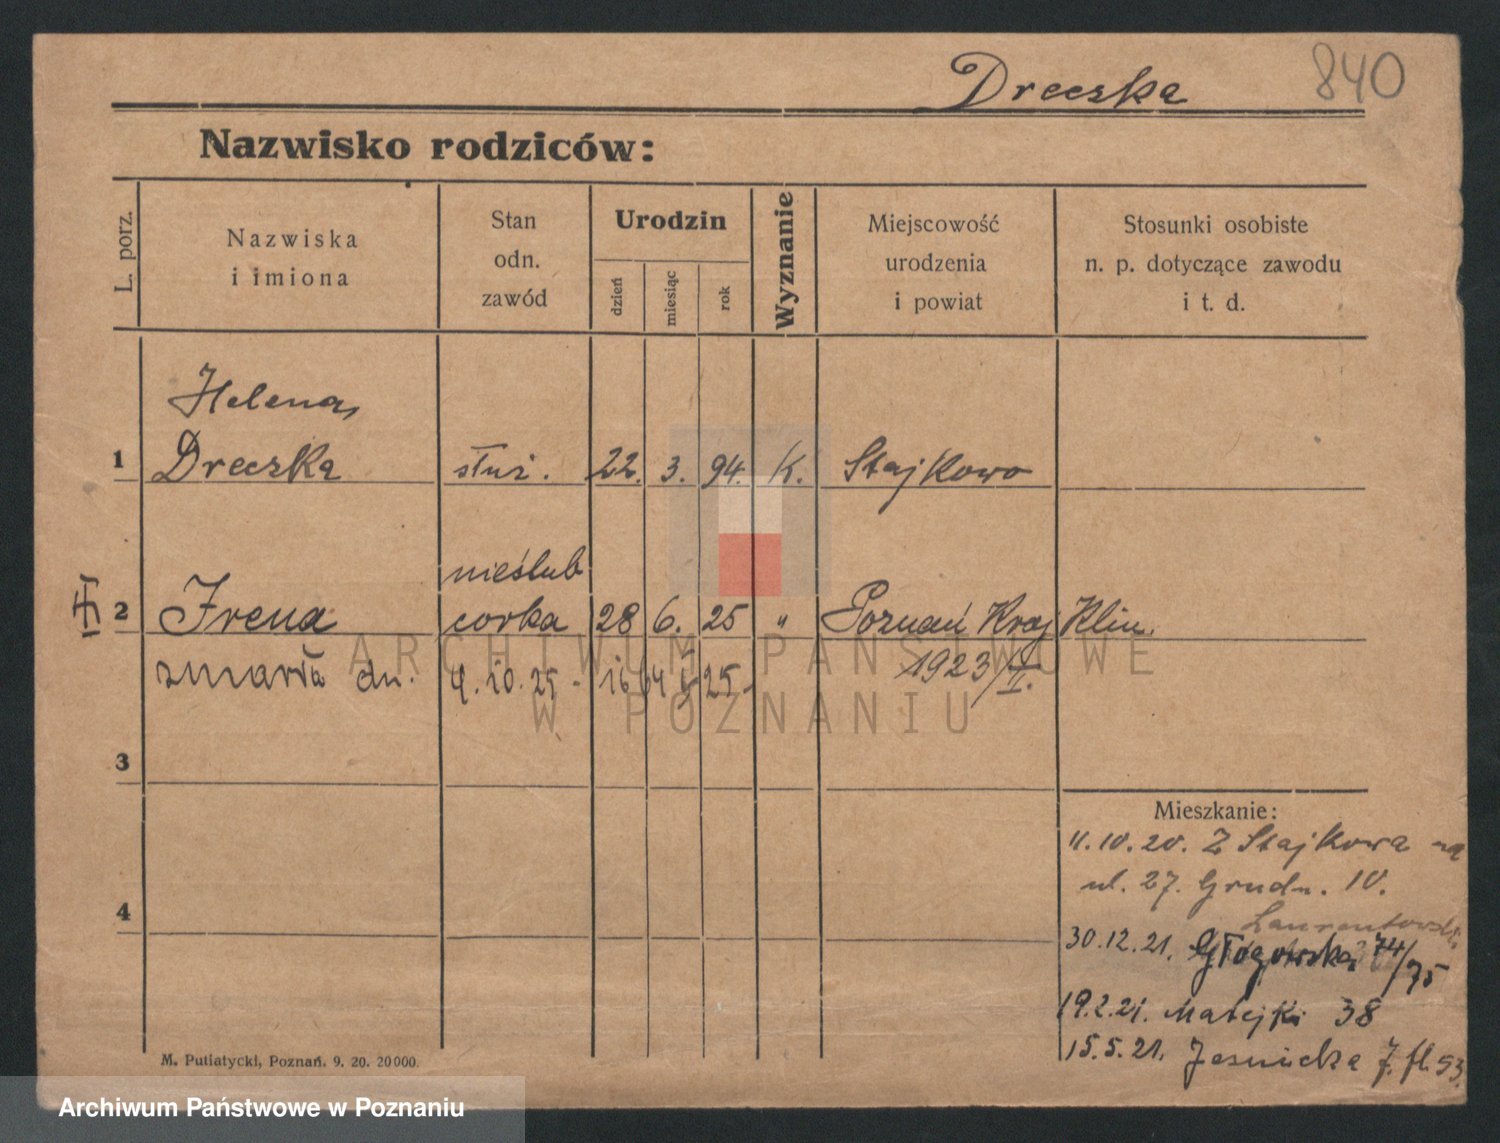 Dreczka 840
Nazwisko rodziców:
L. porz.
Nazwiska
i imiona
Stan
odn.
zawód
Urodzin
dzień
miesiąc
rok
Wyznanie
Miejscowość
urodzenia
i powiat
Stosunki osobiste
n. p. dotyczące zawodu
i t. d.
Helena
1 Dreczka służ. 22. 3. 94. K. Stajkowo
nieślub
2 Irena córka 28 6. 25 " Poznań Kraj Klin.
zmarła dn. 4. 10. 25 - 1923/I.
3
4
Mieszkanie:
11.10.20. Z Stajkowa na
ul. 27. Grudn. 10.
30.12.21. Głogowska 74/75
19.2.21. Matejki 38
15.5.21. 53
M. Putiatycki, Poznań. 9. 20. 20000.
ARCHIWUM PAŃSTWOWE
W POZNANIU
Archiwum Państwowe w Poznaniu